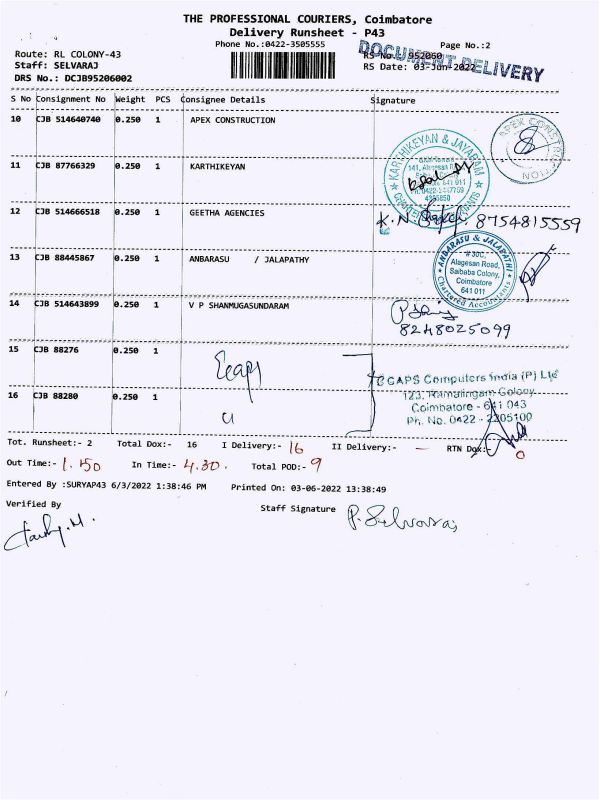 THE PROFESSIONAL COURIERS, Coimbatore
Delivery Runsheet - P43
Phone No.:0422-3505555
Page No.:2
DOCUMENT DELIVERY
Route: RL COLONY-43
RS No.: 952060
Staff: SELVARAJ
RS Date: 03-Jun-2022
DRS No.: DCJB95206002
S No Consignment No Weight PCS Consignee Details Signature
10 CJB 514640740 0.250 1 APEX CONSTRUCTION
APEX CONSTRUCTION
11 CJB 87766329 0.250 1 KARTHIKEYAN
KARTHIKEYAN & JAYARAM
12 CJB 514666518 0.250 1 GEETHA AGENCIES
K.N 8754815559
13 CJB 88445867 0.250 1 ANBARASU / JALAPATHY
ANBARASU & JALAPATHI
# 30C,
Alagesan Road,
Saibaba Colony,
Coimbatore
641 011
Chartered Accountants
14 CJB 514643899 0.250 1 V P SHANMUGASUNDARAM
8248025099
15 CJB 88276 0.250 1
CGAPS Computers India (P) Ltd
123, Ramalingam Colony
16 CJB 88280 0.250 1
Coimbatore - 641 043
Ph. No. 0422 - 2205100
Tot. Runsheet:- 2 Total Dox:- 16 I Delivery:- 16 II Delivery:- - RTN Dox:- 0
Out Time:- 1.50 In Time:- 4.30. Total POD:- 9
Entered By :SURYAP43 6/3/2022 1:38:46 PM Printed On: 03-06-2022 13:38:49
Verified By
Staff Signature P. Selvaraj